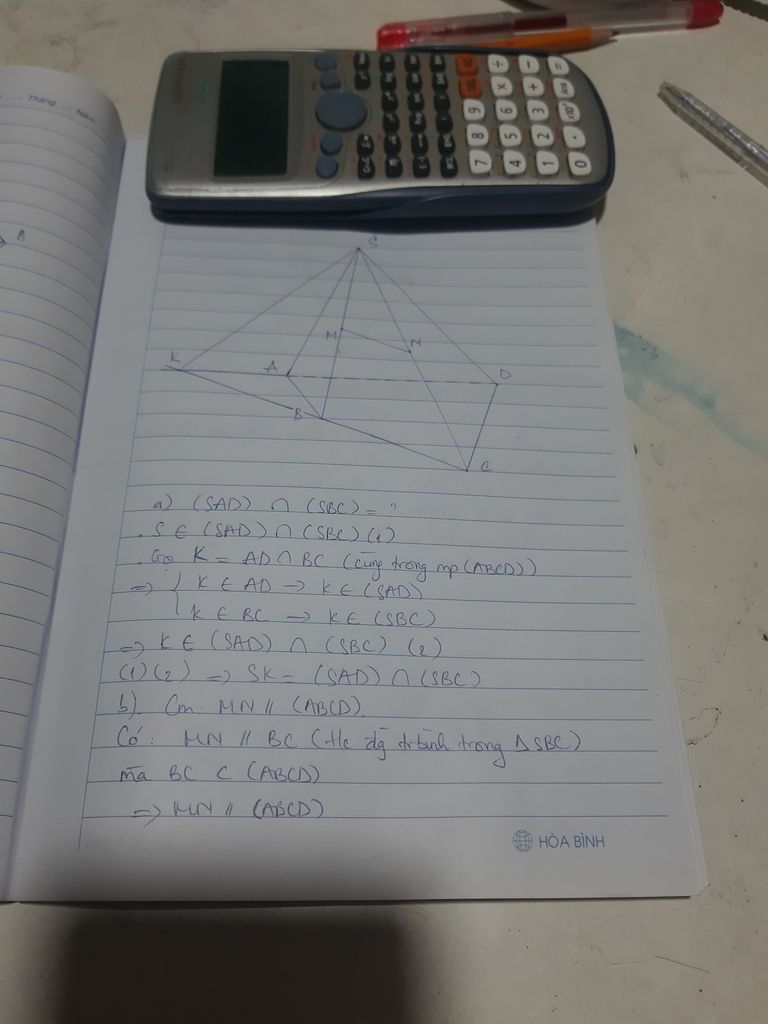 Tháng Năm
B
7 8 9
4 5 6 × ÷
1 2 3 + −
0 . ×10ˣ Ans =
S
M
N
K
A
D
B
C
a) (SAD) ∩ (SBC) = ?
. S ∈ (SAD) ∩ (SBC) (1)
. Gọi K = AD ∩ BC (cùng trong mp (ABCD))
=> { K ∈ AD → K ∈ (SAD)
K ∈ BC → K ∈ (SBC)
=> K ∈ (SAD) ∩ (SBC) (2)
(1) (2) => SK = (SAD) ∩ (SBC)
b) Cm. MN // (ABCD).
Có: MN // BC (t/c đg tr bình trong Δ SBC)
mà BC ⊂ (ABCD)
=> MN // (ABCD)
HÒA BÌNH